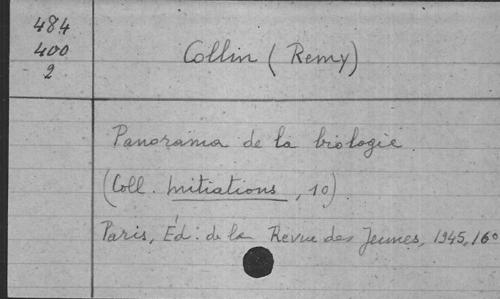 484
400
2
Collin (Remy)
Panorama de la biologie.
(Coll. Initiations, 10)
Paris, Éd: de la Revue des Jeunes, 1945, 16°